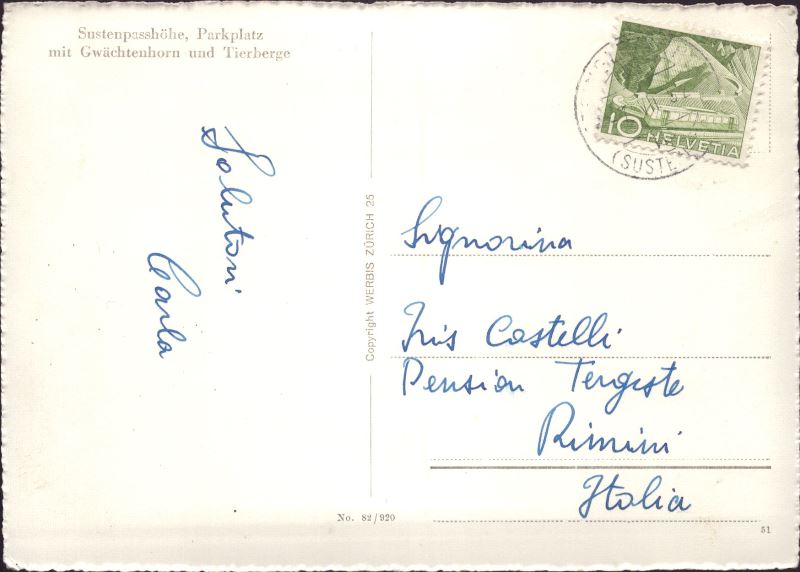 Sustenpasshöhe, Parkplatz
mit Gwächtenhorn und Tierberge
Salutoni
Carla
Copyright WERBIS ZÜRICH 25
10 HELVETIA
(SUSTE
Signorina
Iris Castelli
Pension Tergeste
Rimini
Italia
No. 82/920
51